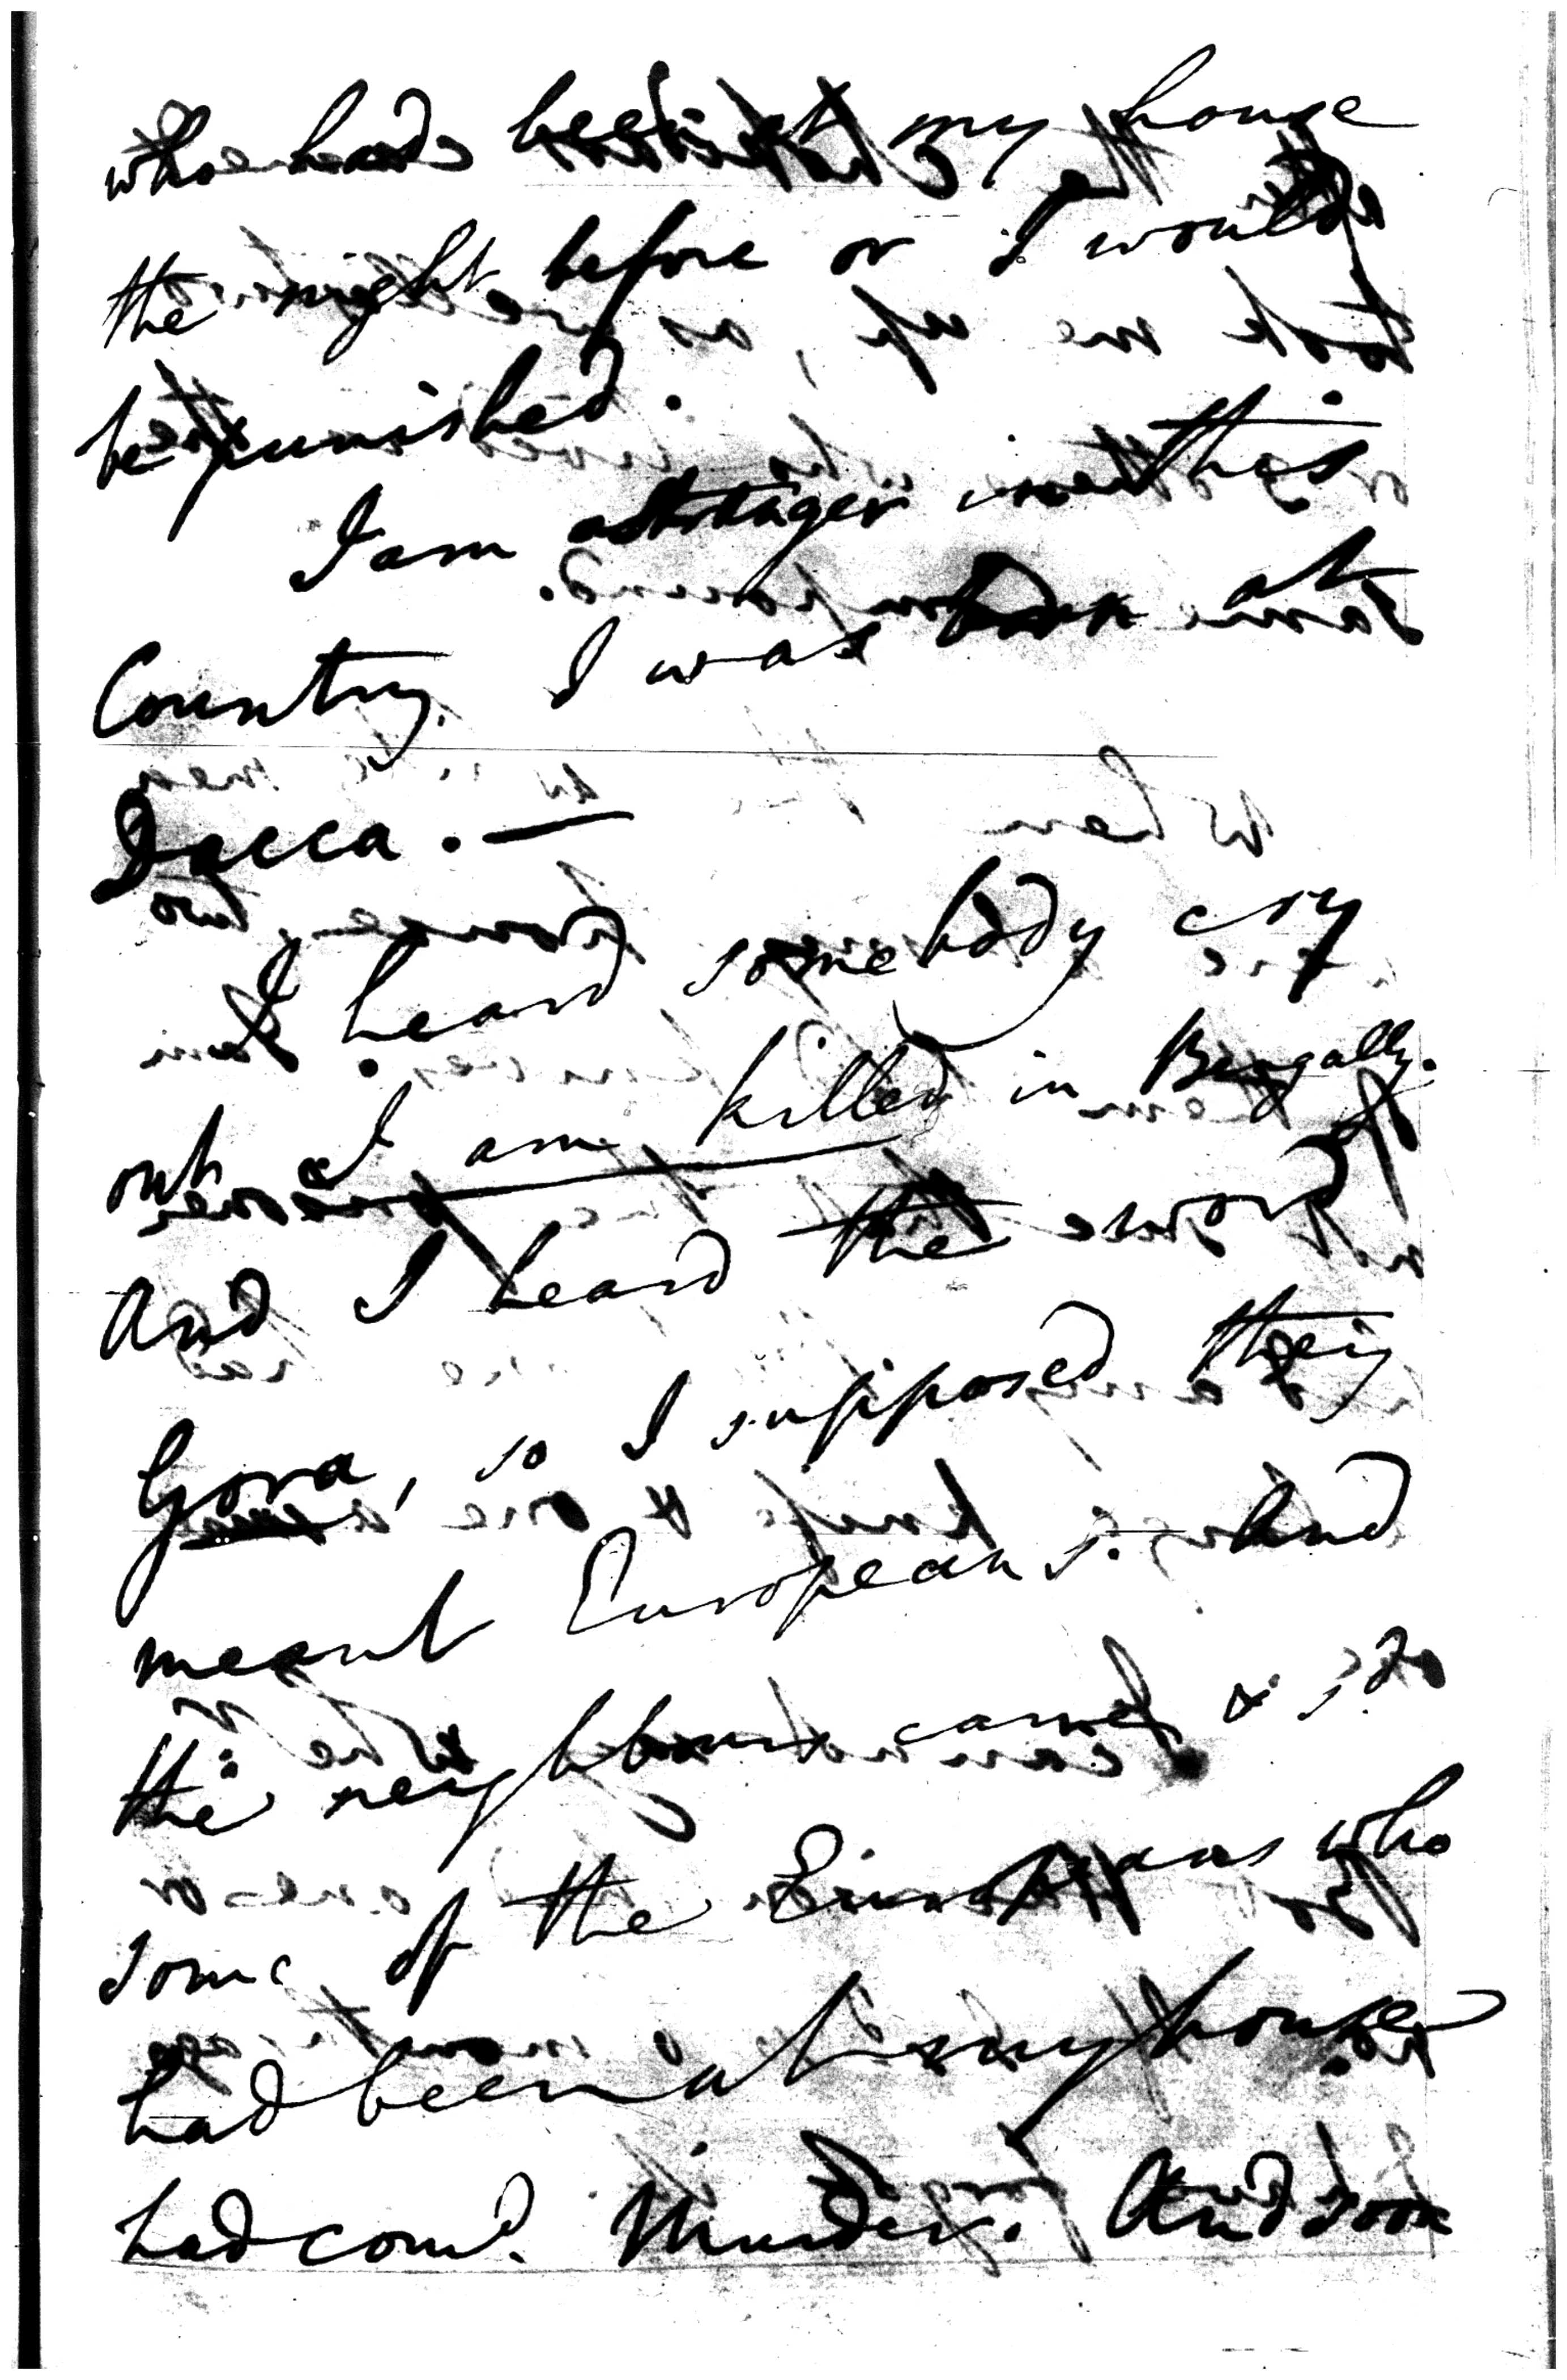 who had been at my house
the night before or I would
be punished.
I am a stranger in this
Country. I was born at
Dacca. —
I heard somebody cry
out I am killed in Bengally.
And I heard the word
Gora, so I supposed they
meant Europeans. And
the neighbours came & sd.
some of the Europeans who
had been at my house
had comd. Murder. And soon